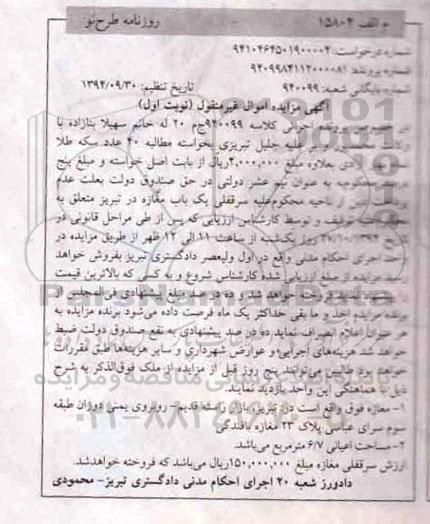 م الف ۱۵۸۰۴ روزنامه طرح‌نو
شماره درخواست: ۹۴۱۰۴۶۴۵۰۱۹۰۰۰۰۴
شماره پرونده: ۹۴۰۹۹۸۴۱۱۲۰۰۰۰۸۱
شماره بایگانی شعبه: ۹۴۰۰۹۹ تاریخ تنظیم: ۱۳۹۴/۰۹/۳۰
آگهی مزایده اموال غیرمنقول (نوبت اول)
در خصوص پرونده اجرائی کلاسه ۹۴۰۰۹۹ج‌م ۲۰ له خانم سهیلا بنازاده با
علیه جلیل تبریزی بخواسته مطالبه ۴۰ عدد سکه طلا
بعلاوه مبلغ ۲،۰۰۰،۰۰۰ریال از بابت اصل خواسته و مبلغ پنج
درصد محکوم‌به به عنوان نیم عشر دولتی در حق صندوق دولت بعلت عدم
از ناحیه محکوم‌علیه سرقفلی یک باب مغازه در تبریز متعلق به
توقیف و توسط کارشناس ارزیابی که پس از طی مراحل قانونی در
روز یک‌شنبه از ساعت ۱۱ الی ۱۲ ظهر از طریق مزایده در
اجرای احکام مدنی واقع در اول ولیعصر دادگستری تبریز بفروش خواهد
مزایده از مبلغ ارزیابی شده کارشناس شروع و به کسی که بالاترین قیمت
فروخته خواهد شد و ده در صد مبلغ پیشنهادی فی‌المجلس از
برنده مزایده اخذ و ما بقی حداکثر یک ماه فرصت داده می‌شود برنده مزایده به
هر عنوان اعلام انصراف نماید ده در صد پیشنهادی به نفع صندوق دولت ضبط
خواهد شد هزینه‌های اجرایی و عوارض شهرداری و سایر هزینه‌ها طبق مقررات
خواهد بود طالبین می‌توانند پنج روز قبل از مزایده از ملک فوق‌الذکر به شرح
ذیل با هماهنگی این واحد بازدید نمایند.
۱- مغازه فوق واقع است در: تبریز، بازار راسته قدیم- روبروی یمنی دوزان طبقه
سوم سرای عباسی پلاک ۲۳ مغازه بافندگی
۲- مساحت اعیانی ۶/۷ مترمربع می‌باشد.
ارزش سرقفلی مغازه مبلغ ۱۵۰،۰۰۰،۰۰۰ریال می‌باشد که فروخته خواهدشد.
دادورز شعبه ۲۰ اجرای احکام مدنی دادگستری تبریز- محمودی